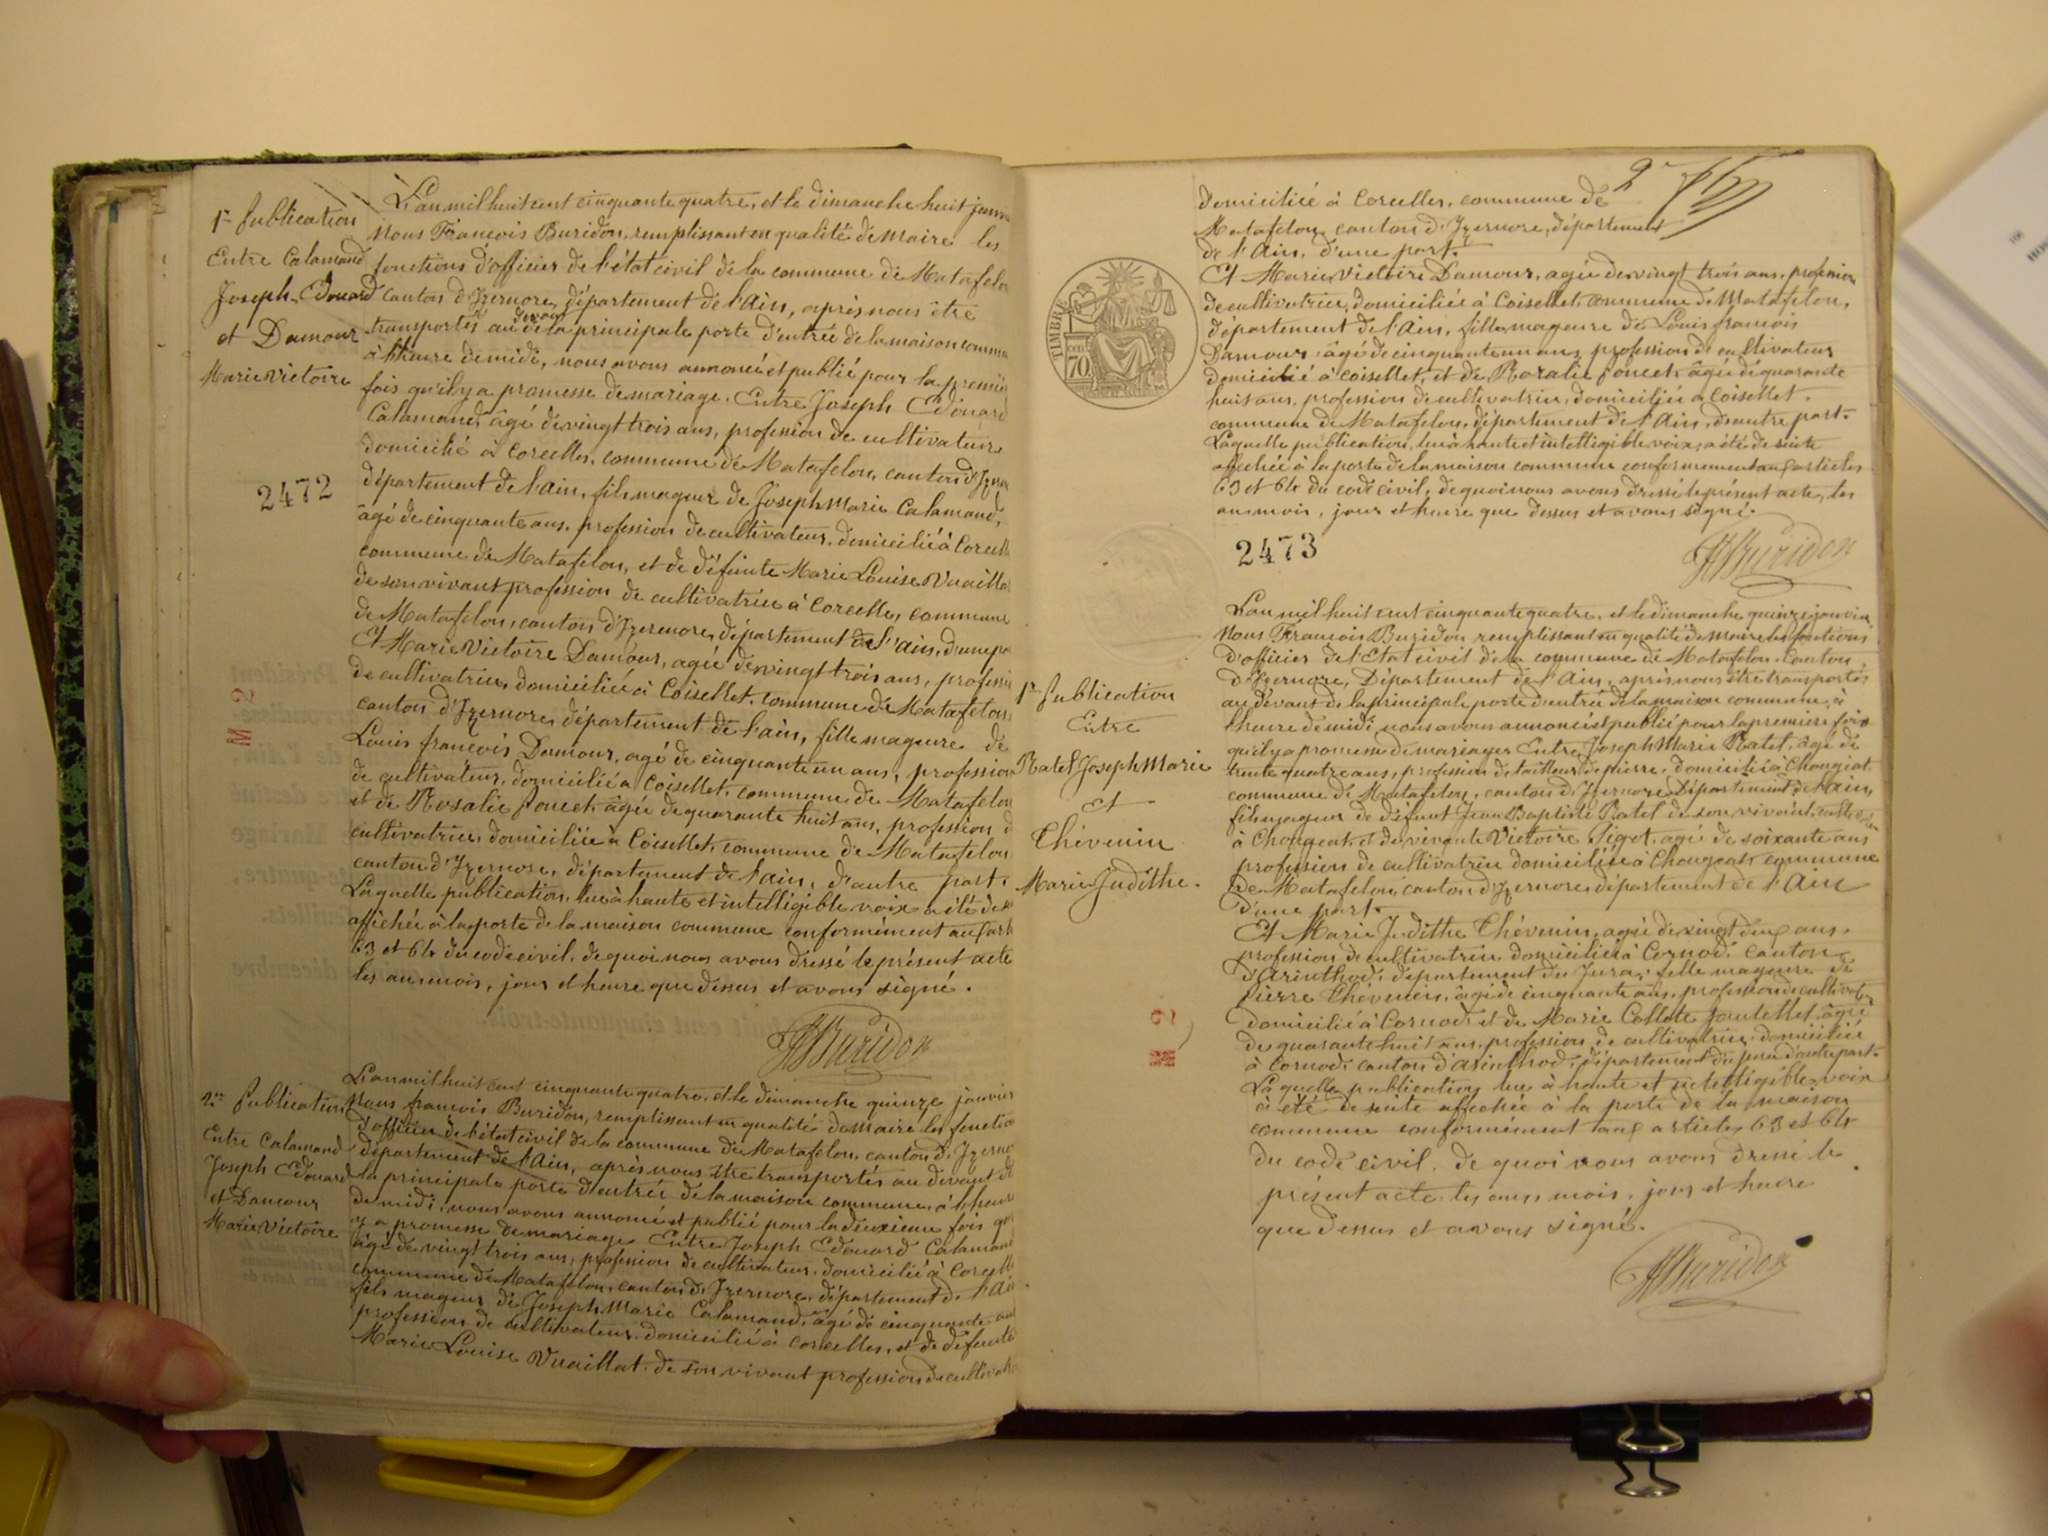 1re Publication
Entre Calamand
Joseph Edouard
et Damour
Marie Victoire
L'an mil huit cent cinquante quatre, et le dimanche huit janvi
Nous François Buridon, remplissant en qualité de maire les
fonctions d'officier de l'état civil de la commune de Matafelo
canton d'Izernore, département de l'ain, après nous être
transportés au devant de la principale porte d'entrée de la maison commu
à l'heure de midi, nous avons annoncé et publié pour la premiè
fois qu'il y a promesse de mariage. Entre Joseph Edouard
Calamand, âgé de vingt trois ans, profession de cultivateur
domicilié à Corcelles, commune de Matafelon, canton d'Izern
2472
département de l'ain, fils mageur de Joseph Marie Calamand,
âgé de cinquante ans, profession de cultivateur, domicilié à Corcell
commune de Matafelon, et de défunte Marie Louise Vuailla
de son vivant profession de cultivatrice à Corcelles, commune
de Matafelon, canton d'Izernore, département de l'ain, d'une pa
Et Marie Victoire Damour, agée de vingt trois ans, professi
de cultivatrice, domiciliée à Coisellet, commune de Matafelon,
canton d'Izernore, département de l'ain, fille mageure de
Louis françois Damour, agé de cinquante un ans, profession
de cultivateur, domicilié à Coisellet, commune de Matafelon
et de Rosalie Poncet, âgée de quarante huit ans, profession d
cultivatrice, domiciliée à Coisellet, commune de Matafelon
canton d'Izernore, département de l'ain, d'autre part.
Laquelle publication, lue à haute et intelligible voix a été de
affichée à la porte de la maison commune conformément aux art
63 et 64 du code civil, de quoi nous avons dressé le présent acte
les an, mois, jour et heure que dessus et avons signé.
Buridon
2me Publication
Entre Calamand
Joseph Edouard
et Damour
Marie Victoire
L'an mil huit cent cinquante quatre, et le dimanche quinze janvier
Nous françois Buridon, remplissant en qualité de maire les fonctio
d'officier de l'état civil de la commune de Matafelon, canton d'Izerno
département de l'Ain, après nous être transportés au devant de
la principale porte d'entrée de la maison commune, à l'heure
de midi, nous avons annoncé et publié pour la deuxième fois qu
y a promesse de mariage Entre Joseph Edouard Calamand
âgé de vingt trois ans, profession de cultivateur, domicilié à Corcell
commune de Matafelon, canton d'Izernore, département de l'ai
fils mageur de Joseph Marie Calamand, âgé de cinquante an
profession de cultivateur, domicilié à Corcelles, et de défunte
Marie Louise Vuaillat, de son vivant profession de cultivatr
2
domiciliée à Corcelles, commune de
Matafelon, canton d'Izernore, département
de l'Ain, d'une part.
TIMBRE
70
Et Marie Victoire Damour, agée de vingt trois ans, profession
de cultivatrice, domiciliée à Coisellet, commune de Matafelon,
département de l'Ain, fille mageure de Louis francois
Damour âgé de cinquante un ans, profession de cultivateur
domicilié à Coisellet, et de Rosalie Poncet, âgée de quarante
huit ans, profession de cultivatrice, domiciliée à Coisellet,
commune de Matafelon, département de l'Ain, d'autre part.
Laquelle publication, lue à haute et intelligible voix, a été de suite
affichée à la porte de la maison commune conformément aux articles
63 et 64 du code civil, de quoi nous avons dressé le présent acte, les
an, mois, jour et heure que dessus et avons signé.
2473
Buridon
1re Publication
Entre
Ratel Joseph Marie
Et
Thévenin
Marie Judithe.
L'an mil huit cent cinquante quatre, et le dimanche quinze janvier,
Nous François Buridon remplissant en qualité de Maire les fonctions
d'officier de l'Etat civil de la commune de Matafelon, Canton
d'Izernore, Département de l'Ain, après nous être transportés
au devant de la principale porte d'entrée de la maison commune, à
l'heure de midi, nous avons annoncé et publié pour la première fois
qu'il y a promesse de mariages Entre Joseph Marie Ratel, âgé de
trente quatre ans, profession de tailleur de pierre, domicilié à Chougeat
commune de Matafelon, canton d'Izernore Département de l'ain,
fils mageur de défunt Jean Baptiste Ratel de son vivant cultivateur
à Chougeat, et de vivante Victoire Pigot, agé de soixante ans
profession de cultivatrice domiciliée à Chougeat, commune
de Matafelon, canton d'Izernore, département de l'Ain
d'une part.
Et Marie Judithe Thévenin, agée de vingt deux ans,
profession de cultivatrice domiciliée à Cornod, Canton
d'Arinthod, département du Jura, fille mageure de
Pierre Thévenin, âgé de cinquante ans, profession de cultivateur
domicilié à Cornod, et de Marie Collete âgée
de quarante huit ans, profession de cultivatrice, domiciliée
à Cornod, canton d'Arinthod, département du jura d'autre part.
Laquelle publication lue à haute et intelligible voix
a été de suite affichée à la porte de la maison
commune conformément aux articles 63 et 64
du code civil, de quoi nous avons dressé le
présent acte les an, mois, jour et heure
que dessus et avons signé.
Buridon